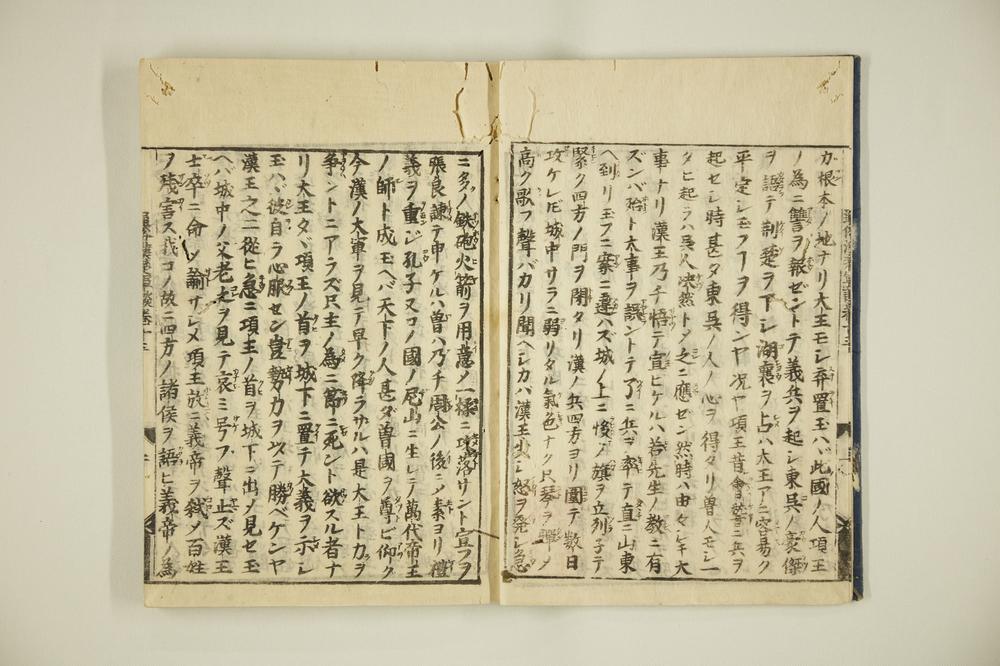 カ根本ノ地ナリ大王モシ弃置玉ハヾ此國ノ人項王
ノ為ニ讐ヲ報ゼントテ義兵ヲ起シ東呉ノ豪傑
ヲ語テ荊楚ヲ下シ湖襄ヲ占ハ大王アニ容易ク
平定シ玉フヿヲ得ンヤ况ヤ項王昔會稽ニ兵ヲ
起セシ時甚タ東呉ノ人ノ心ヲ得タリ曽人モシ一
タヒ起ラハ呉人决然トメ之ニ應ゼン然時ハ由々シキ大
事ナリ漢王乃チ悟テ宣ヒケルハ若先生ノ教ニ有
ズンバ殆ト大事ヲ誤ントテ了ニ兵ヲ率テ直ニ山東
ヘ到リ玉フニ案ニ違ハズ城ノ上ニ悛ク旗ヲ立列子テ
緊ク四方ノ門ヲ閉タリ漢ノ兵四方ヨリ圍テ数日
攻ケレ𪜈城中サラニ弱リタル氣色ナク只琴ヲ弾メ
高ク歌フ聲バカリ聞ヘシカハ漢王少シ怒ヲ発シ急
ニ多ノ鉄砲火箭ヲ用意ノ一揉ニ攻落サント宣フヲ
張良諫テ申ケルハ曽ハ乃チ周公ノ後ニメ素ヨリ禮
義ヲ重ジ孔子又コノ國ノ尼山ニ生レテ萬代帝王
ノ師ト成玉ヘバ天下ノ人甚ダ曽國ヲ尊ビ仰ク
今漢ノ大軍ヲ見テ早ク降ラサルハ是大王トカヲ
争ントニアラズ只主ノ為ニ節ニ死ント欲スル者ナ
リ大王タヾ項王ノ首ヲ城下ニ置テ大義ヲ示シ
玉ハヾ彼自ラ心服セン豈勢力ヲ以テ勝ベケンヤ
漢王之ニ從ヒ急ニ項王ノ首ヲ城下ニ出メ見セ玉
ヘバ城中ノ父老之ヲ見テ哀ミ号フ聲止ズ漢王
士卒ニ命メ論サシメ項王放ニ義帝ヲ弑メ百姓
ヲ残害ス我コノ故ニ四方ノ諸侯ヲ語ヒ義帝ノ為